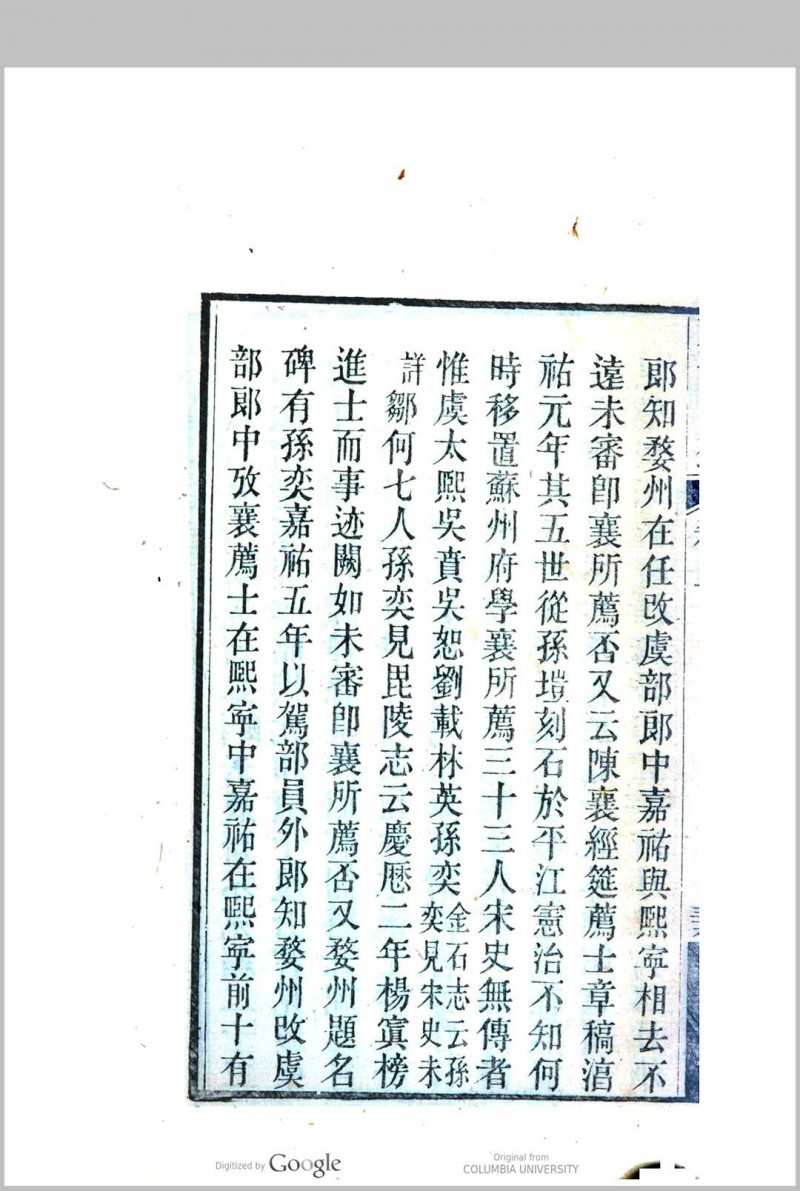 郎知婺州在任改虞部郎中嘉祐與熙寧相去不
遠未審卽襄所薦否又云陳襄經筵薦士章稿淳
祐元年其五世從孫塏刻石於平江憲治不知何
時移置蘇州府學襄所薦三十三人宋史無傳者
惟虞太熙吳賁吳恕劉載林英孫奕金石志云孫奕見宋史未
詳鄒何七人孫奕見毘陵志云慶曆二年楊寘榜
進士而事迹闕如未審卽襄所薦否又婺州題名
碑有孫奕嘉祐五年以駕部員外郎知婺州改虞
部郎中攷襄薦士在熙寧中嘉祐在熙寧前十有
Digitized by Google
Original from
COLUMBIA UNIVERSITY